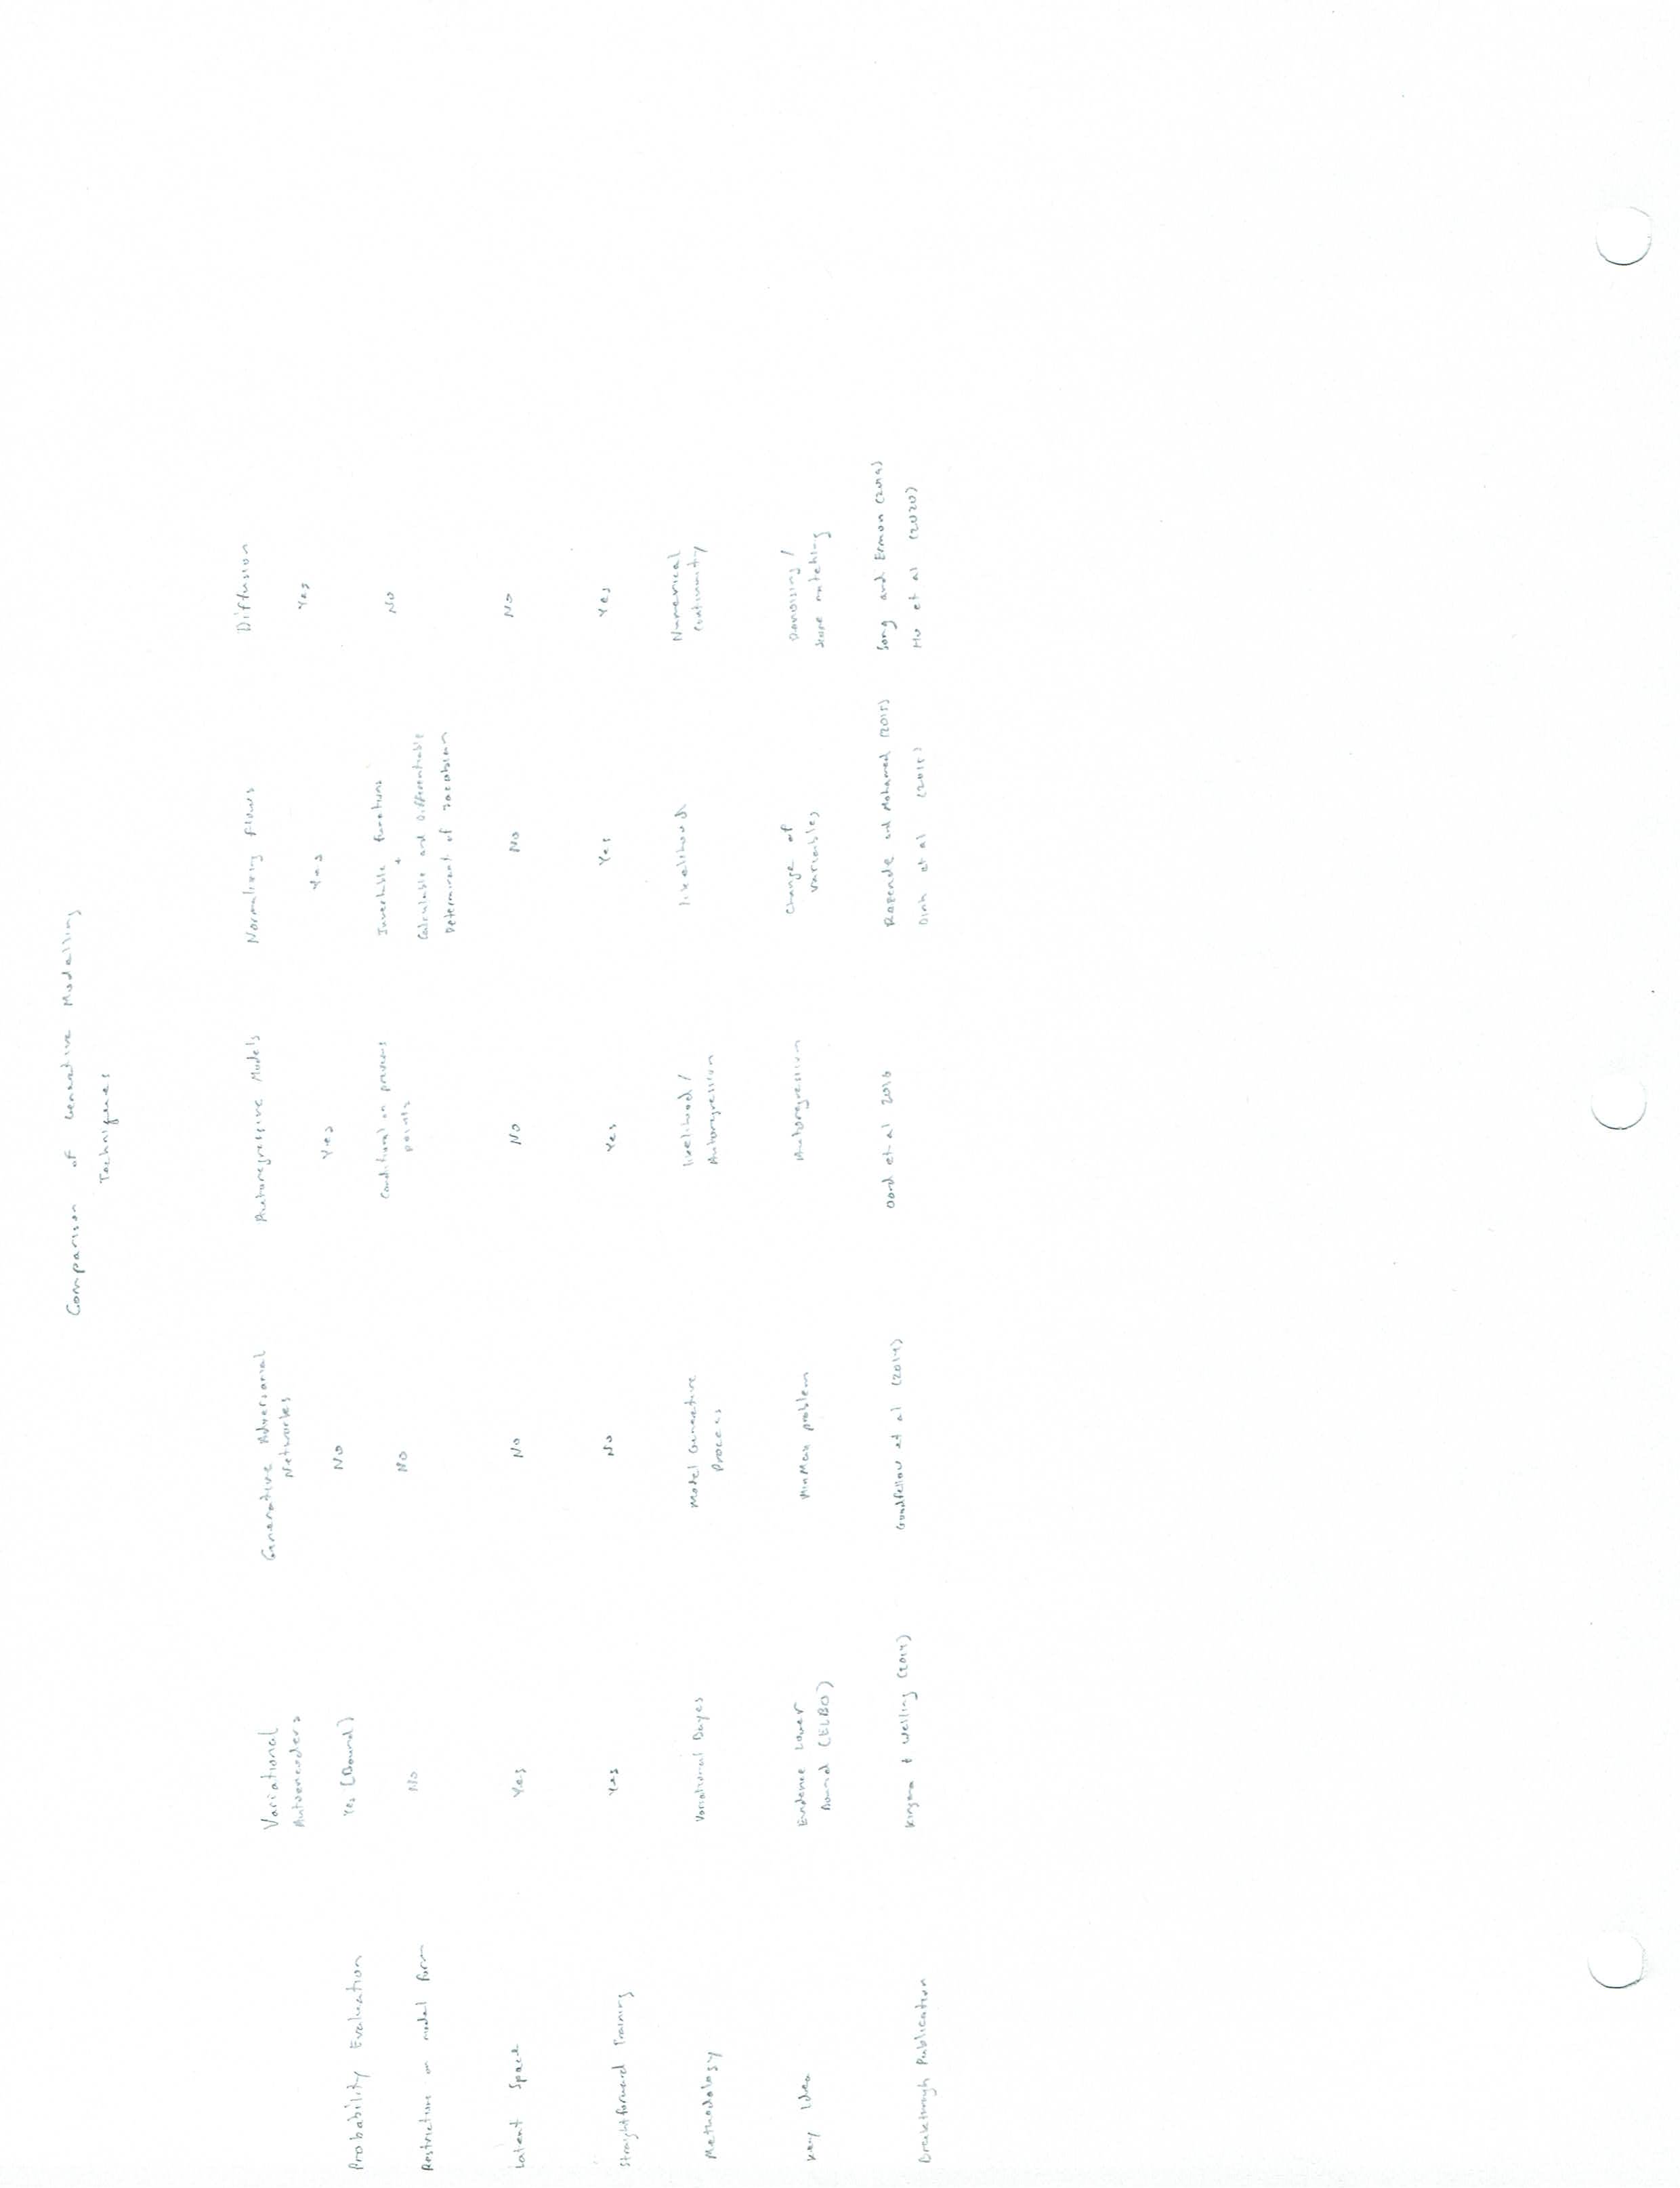 Comparison of Generative Modelling
Techniques
Variational Autoencoders
Generative Adversarial Networks
Autoregressive Models
Normalizing flows
Diffusion
Probability Evaluation
Yes (Bound)
No
Yes
Yes
Yes
Restrictions on model form
No
No
Conditional on previous
points
Invertible functions
+
Calculable and Differentiable
Determinant of Jacobian
No
Latent Space
Yes
No
No
No
No
Straightforward Training
Yes
No
Yes
Yes
Yes
Methodology
Variational Bayes
Model Generative
Process
likelihood /
Autoregression
likelihood
Numerical
Continuity
Key Idea
Evidence Lower
Bound (ELBO)
MinMax problem
Autoregression
Change of
variables
Denoising /
Score matching
Breakthrough Publication
Kingma & Welling (2014)
Goodfellow et al (2014)
Oord et al 2016
Rezende and Mohamed (2015)
Dinh et al (2015)
Song and Ermon (2019)
Ho et al (2020)